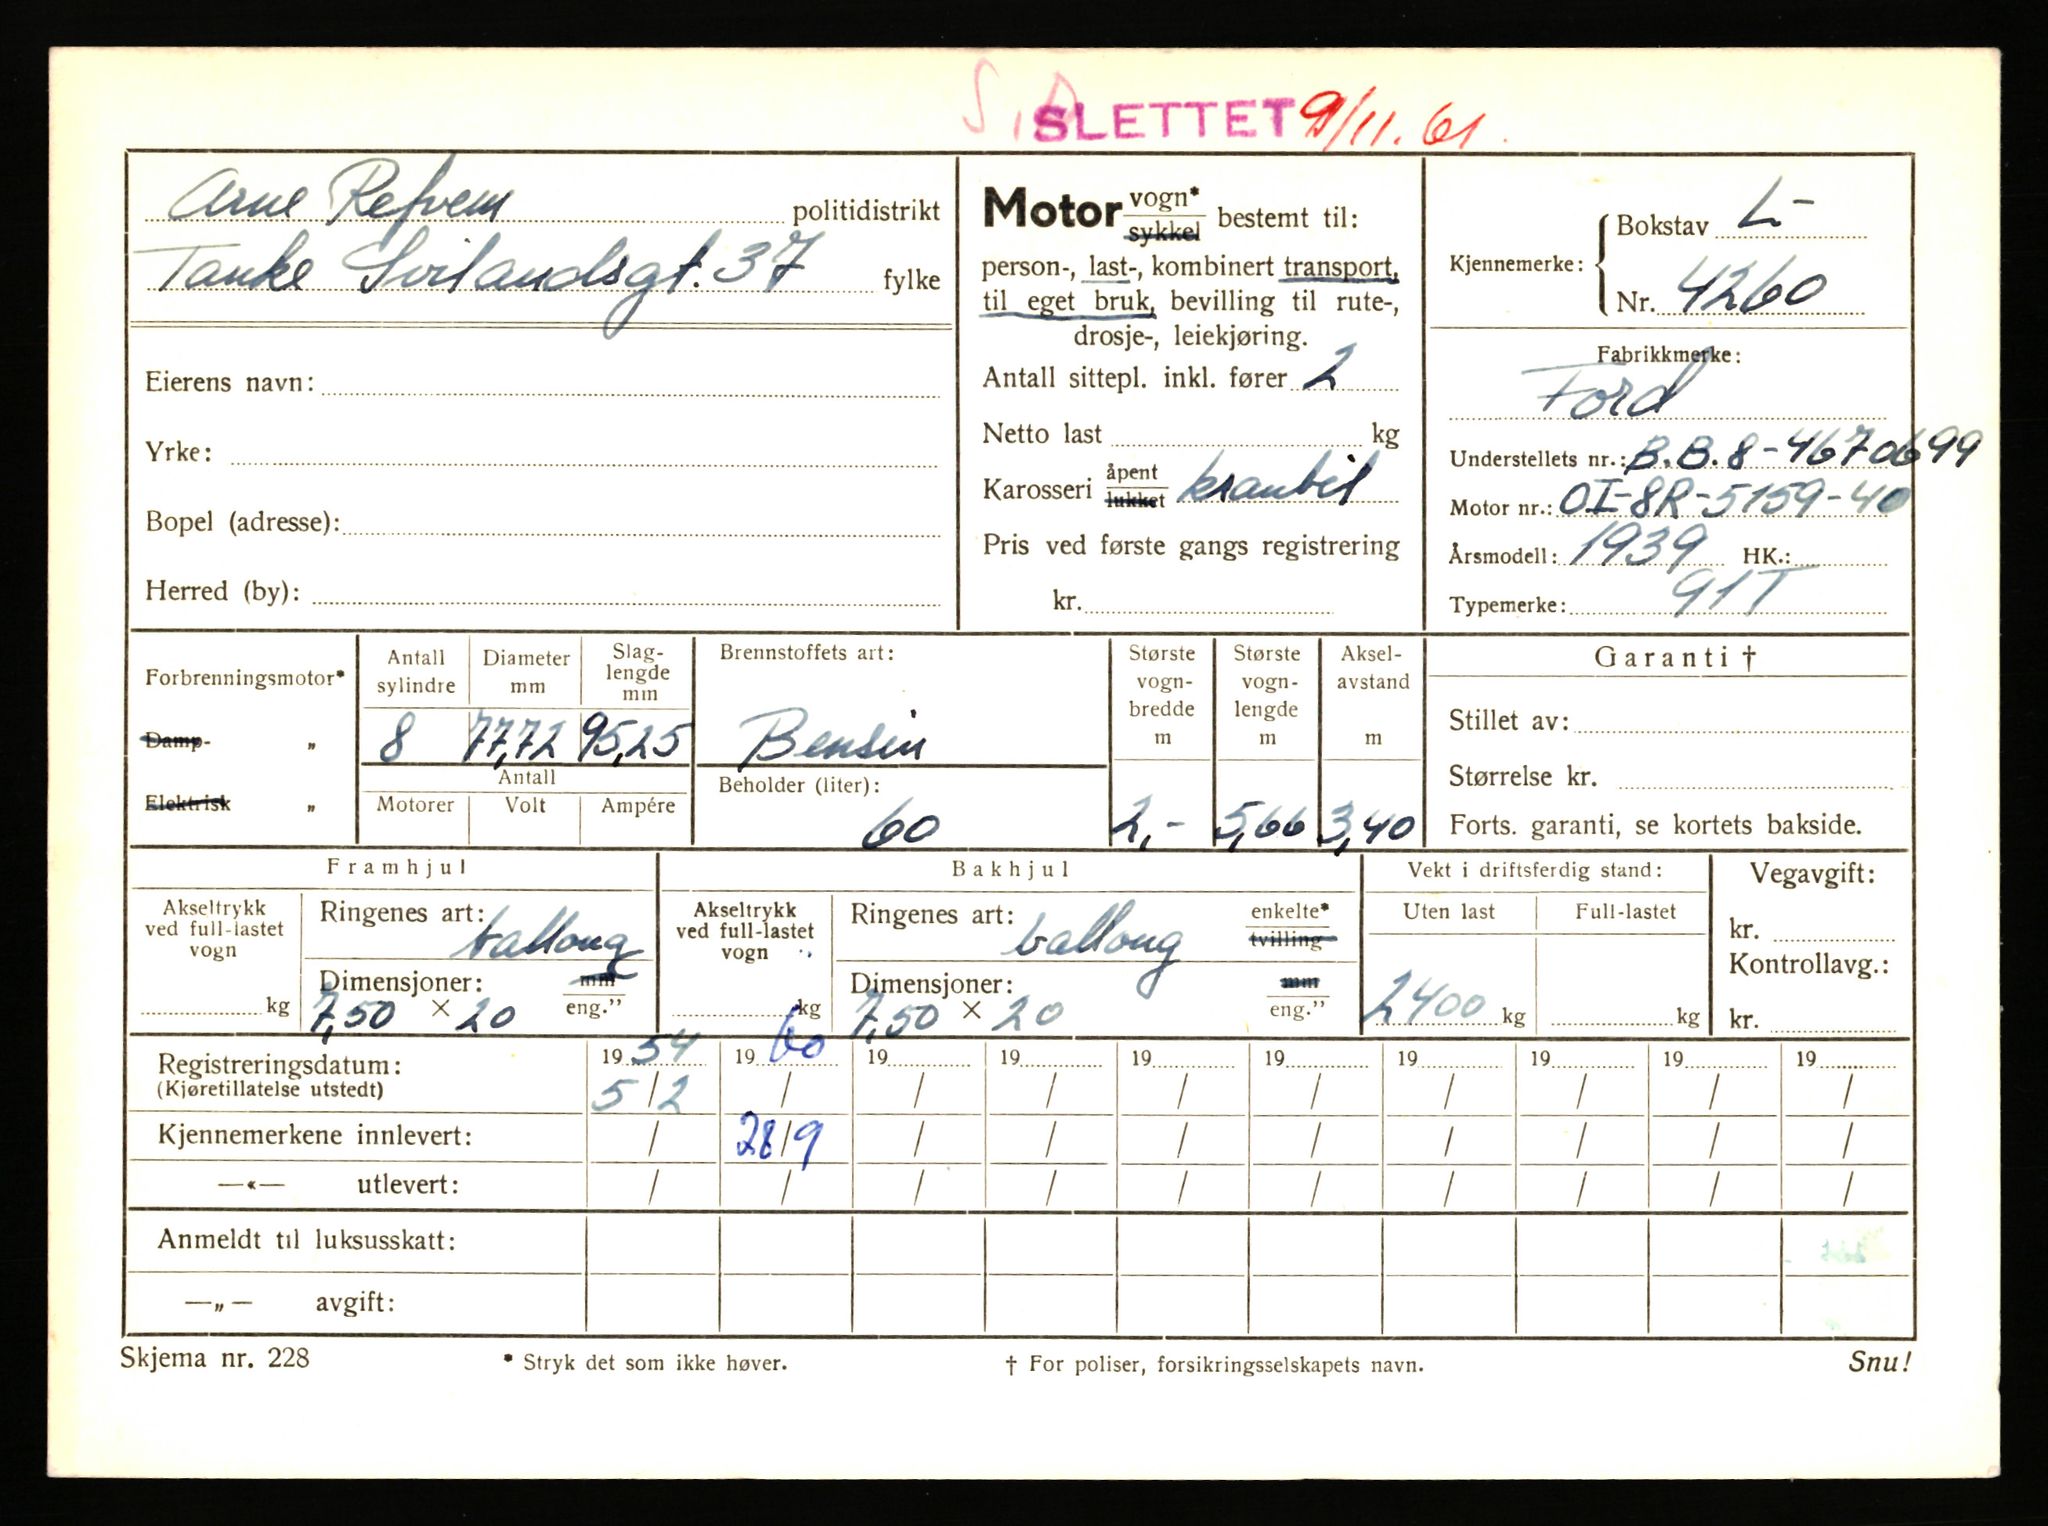 SLETTET 9/11.61.
Arne Refvem politidistrikt
Tanke Svilandsgt. 37 fylke
Eierens navn:
Yrke:
Bopel (adresse):
Herred (by):
Motor vogn* sykkel bestemt til:
person-, last-, kombinert transport,
til eget bruk, bevilling til rute-,
drosje-, leiekjøring.
Antall sittepl. inkl. fører 2
Netto last kg
Karosseri åpent lukket kranbil
Pris ved første gangs registrering
kr.
Kjennemerke: Bokstav L-
Nr. 4260
Fabrikkmerke:
Ford
Understellets nr.: B.B.8-4670699
Motor nr.: OI-8R-5159-40
Årsmodell: 1939 HK.:
Typemerke: 91T
Forbrenningsmotor*
Damp- „
Elektrisk „
Antall sylindre
8
Diameter mm
77,72
Slag-
lengde
mm
95,25
Antall
Motorer Volt Ampére
Brennstoffets art:
Bensin
Beholder (liter):
60
Største
vogn-
bredde
m
2,-
Største
vogn-
lengde
m
5,66
Aksel-
avstand
m
3,40
Garanti †
Stillet av:
Størrelse kr.
Forts. garanti, se kortets bakside.
Framhjul
Akseltrykk
ved full-lastet
vogn
kg
Ringenes art:
ballong
Dimensjoner: mm
7,50 × 20 eng."
Bakhjul
Akseltrykk
ved full-lastet
vogn
kg
Ringenes art: enkelte*
ballong tvilling
Dimensjoner: mm
7,50 × 20 eng."
Vekt i driftsferdig stand:
Uten last Full-lastet
2400 kg kg
Vegavgift:
kr.
Kontrollavg.:
kr.
Registreringsdatum: 19 54 19 60 19 19 19 19 19 19 19 19
(Kjøretillatelse utstedt) 5/2 / / / / / / / / /
Kjennemerkene innlevert: / 28/9 / / / / / / / /
—«— utlevert: / / / / / / / / / /
Anmeldt til luksusskatt:
—„— avgift:
Skjema nr. 228 * Stryk det som ikke høver. † For poliser, forsikringsselskapets navn. Snu!